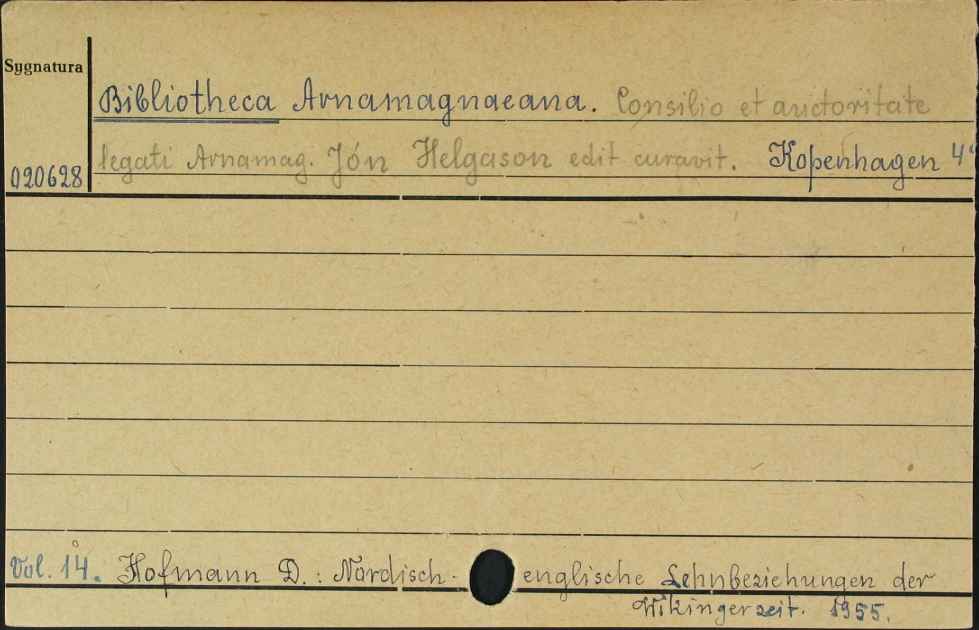 Sygnatura
Bibliotheca Arnamagnaeana. Consilio et auctoritate
legati Arnamag. Jón Helgason edit curavit. Kopenhagen 4°
020628
Vol. 14. Hofmann D.: Nordisch-englische Lehnbeziehungen der
Wikingerzeit. 1955.